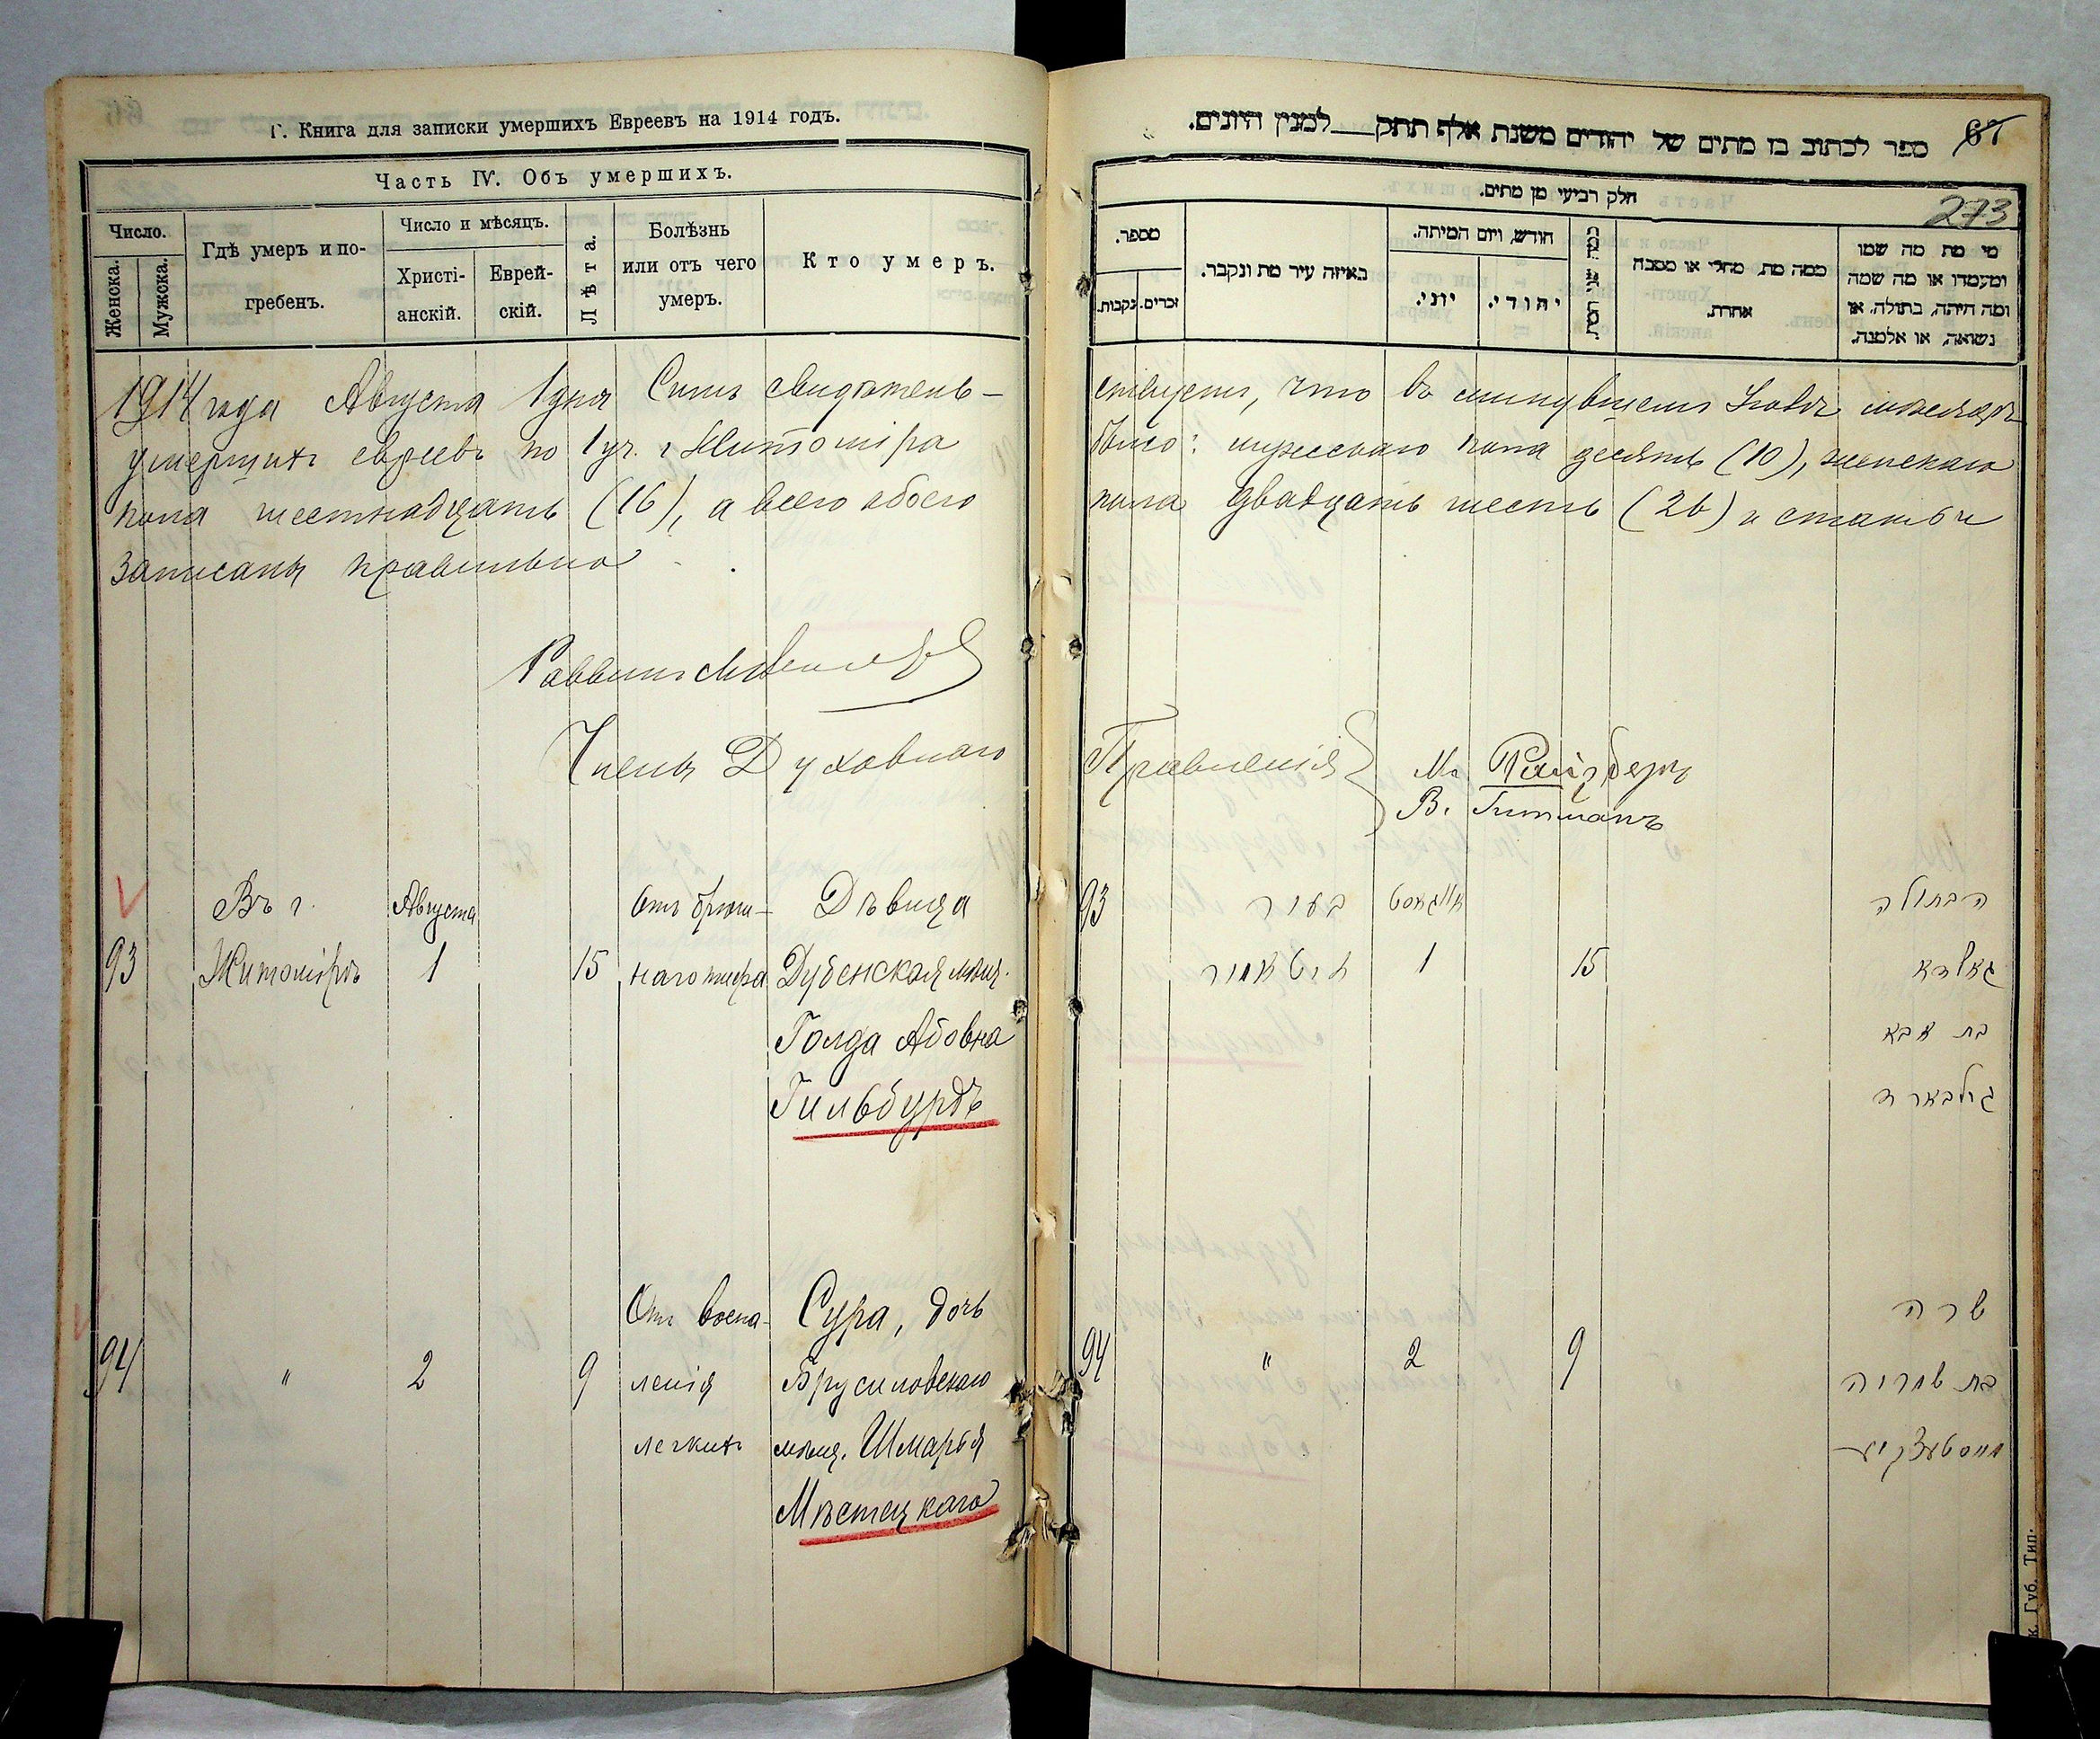 Г. Книга для записки умершихъ Евреевъ на 1914 годъ.
Часть IV. Объ умершихъ.
Число.
Женска.
Мужска.
Гдѣ умеръ и по-
гребенъ.
Число и мѣсяцъ.
Христі-
анскій.
Еврей-
скій.
Лѣта.
Болѣзнь
или отъ чего
умеръ.
Кто умеръ.
1914 года Августа 1 дня Симъ свидѣтель-
умершихъ евреевъ по 1 уч. г Житоміра
пола шестнадцать (16), а всего обоего
записаны правильно
Раввинъ
Члены Духовнаго
Въ г. Августа Отъ брюш- Дѣвица
93 Житомірѣ 1 15 наго тифа Дубенская мѣщ.
Голда Абовна
Гильбурдъ
Отъ воспа- Сура, дочь
94 " 2 9 ленія Брусиловскаго
легкихъ мѣщ. Шмарья
Мѣстецкаго
ספר לכתוב בו מתים של יהודים משנת אלף תתק למנין היונים.
67
חלק רביעי מן מתים.
273
מספר.
זכרים.
נקבות.
באיזה עיר מת ונקבר.
חודש, ויום המיתה.
יוני.
יהודי.
ממה מת, מחלי או מסבה
אחרת.
מי מת מה שמו
ומעמדו או מה שמה
ומה היתה, בתולה, או
נשואה, או אלמנה.
ствуетъ, что въ минувшемъ Іюлѣ мѣсяцѣ
было: мужескаго пола десять (10), женскаго
пола двадцать шесть (26) и статьи
Правленія М. Райзбергъ
В. Гитманъ
93 בעיר אוגאסט הבתולה
זיטאמיר 1 15 גאלדא
בת אבא
גילבארד
שרה
94 " 2 9 בת שמריה
מיסטעצקיע
к. Губ. Тип.